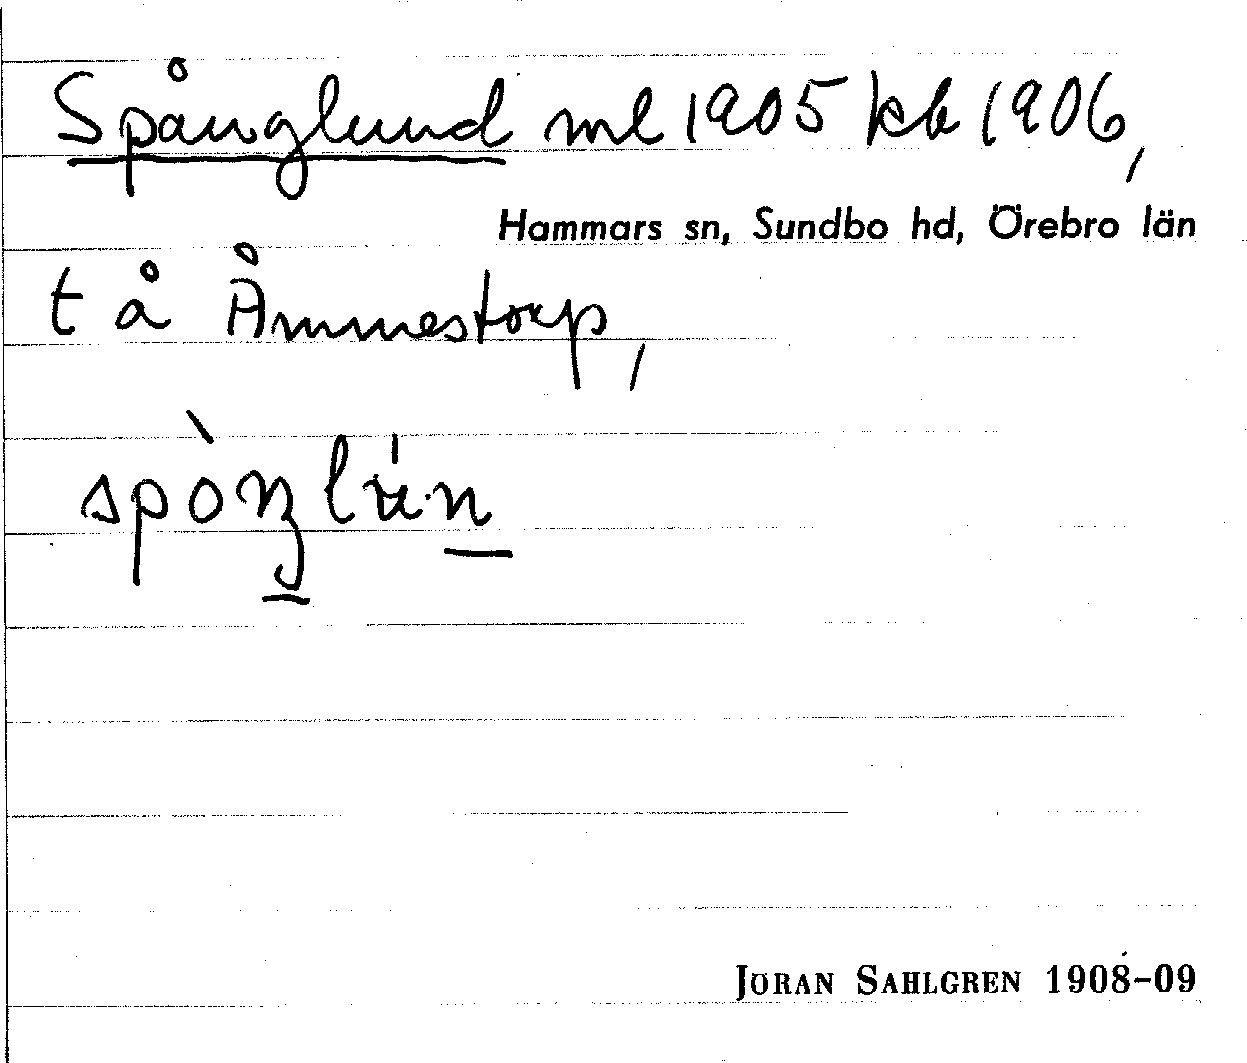 Spånglund ml 1905 kb 1906,
Hammars sn, Sundbo hd, Örebro län
t å Åmmestorp,
spòŋlún
JÖRAN SAHLGREN 1908-09